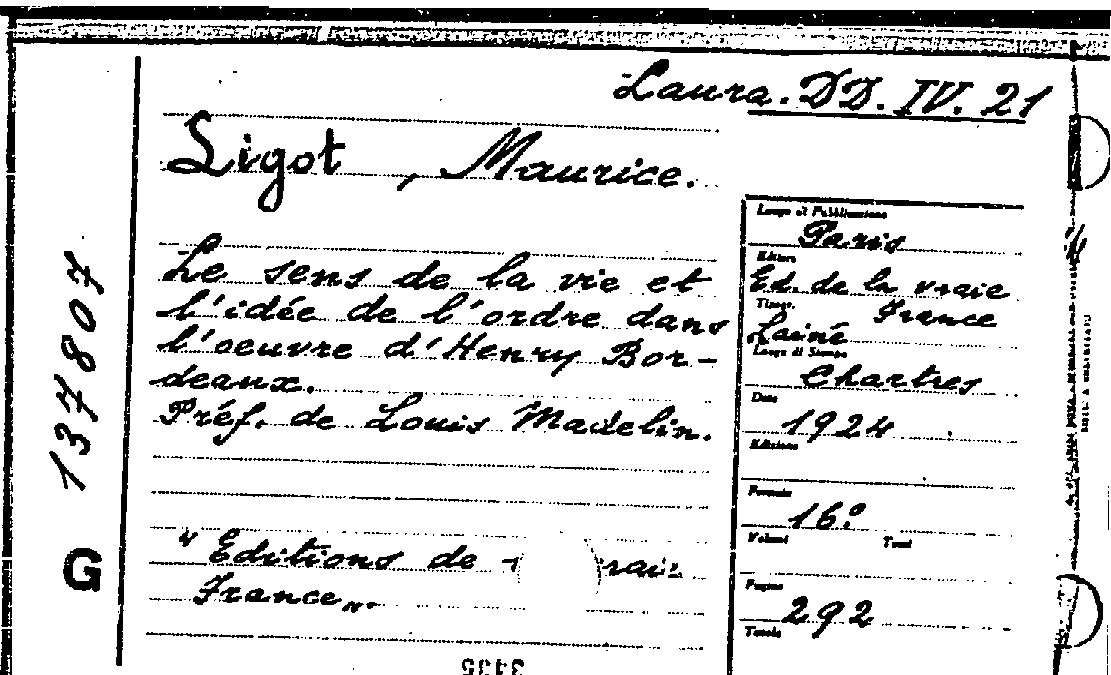 Laura. DD. IV. 21
Ligot, Maurice.
Le sens de la vie et
l'idée de l'ordre dans
l'oeuvre d'Henry Bor-
deaux.
Préf. de Louis Madelin.
"Editions de
France".
Luogo di Pubblicazione
Paris
Editore
Ed. de la vraie
France
Lainé
Luogo di Stampa
Chartres
Data
1924
Edizione
Formato
16°
Volumi Tomi
Pagine
292
Tavole
G 137807